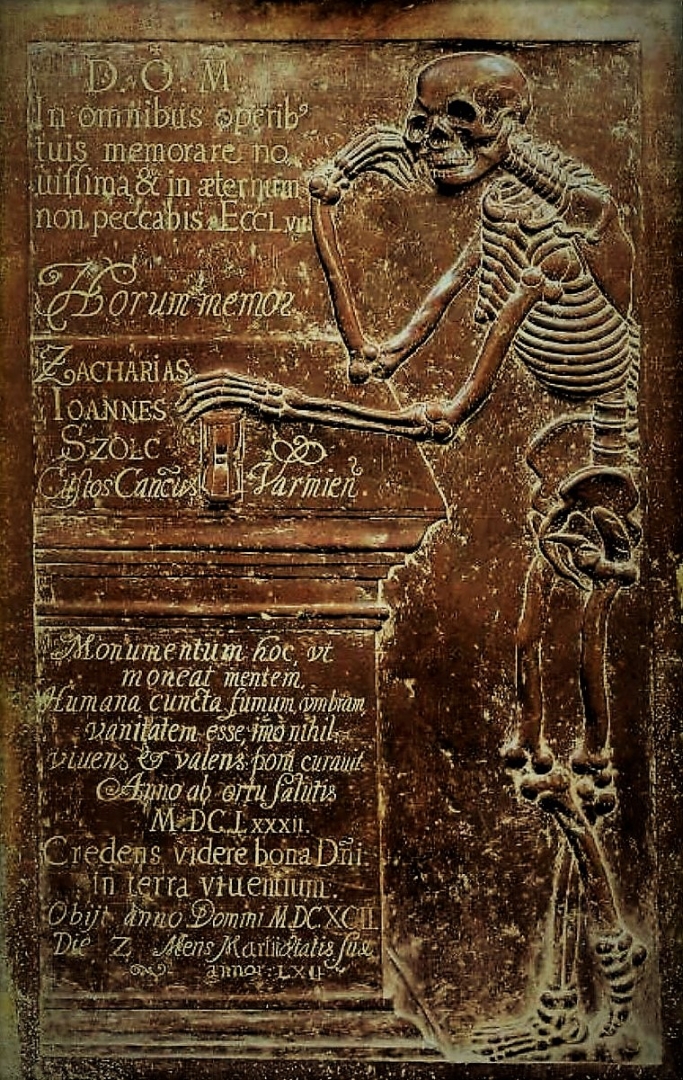 D. O. M
In omnibus operib⁹
tuis memorare no
uissima & in æternum
non peccabis. ECCL VII
Horum memor
ZACHARIAS
IOANNES
SZOLC
Custos Cancūs Varmieñ.
Monumentum hoc, vt
moneat mentem,
Humana cuncta fumum, vmbram
vanitatem esse, imò nihil.
viuens & valens poni curauit
Anno ab ortu salutis
M.DC.LXXXII.
Credens videre bona Dñi.
in terra viuentium.
Obijt anno Domini M.DCXCII
Die Z Mens Martij ætatis suæ
annor: LXII